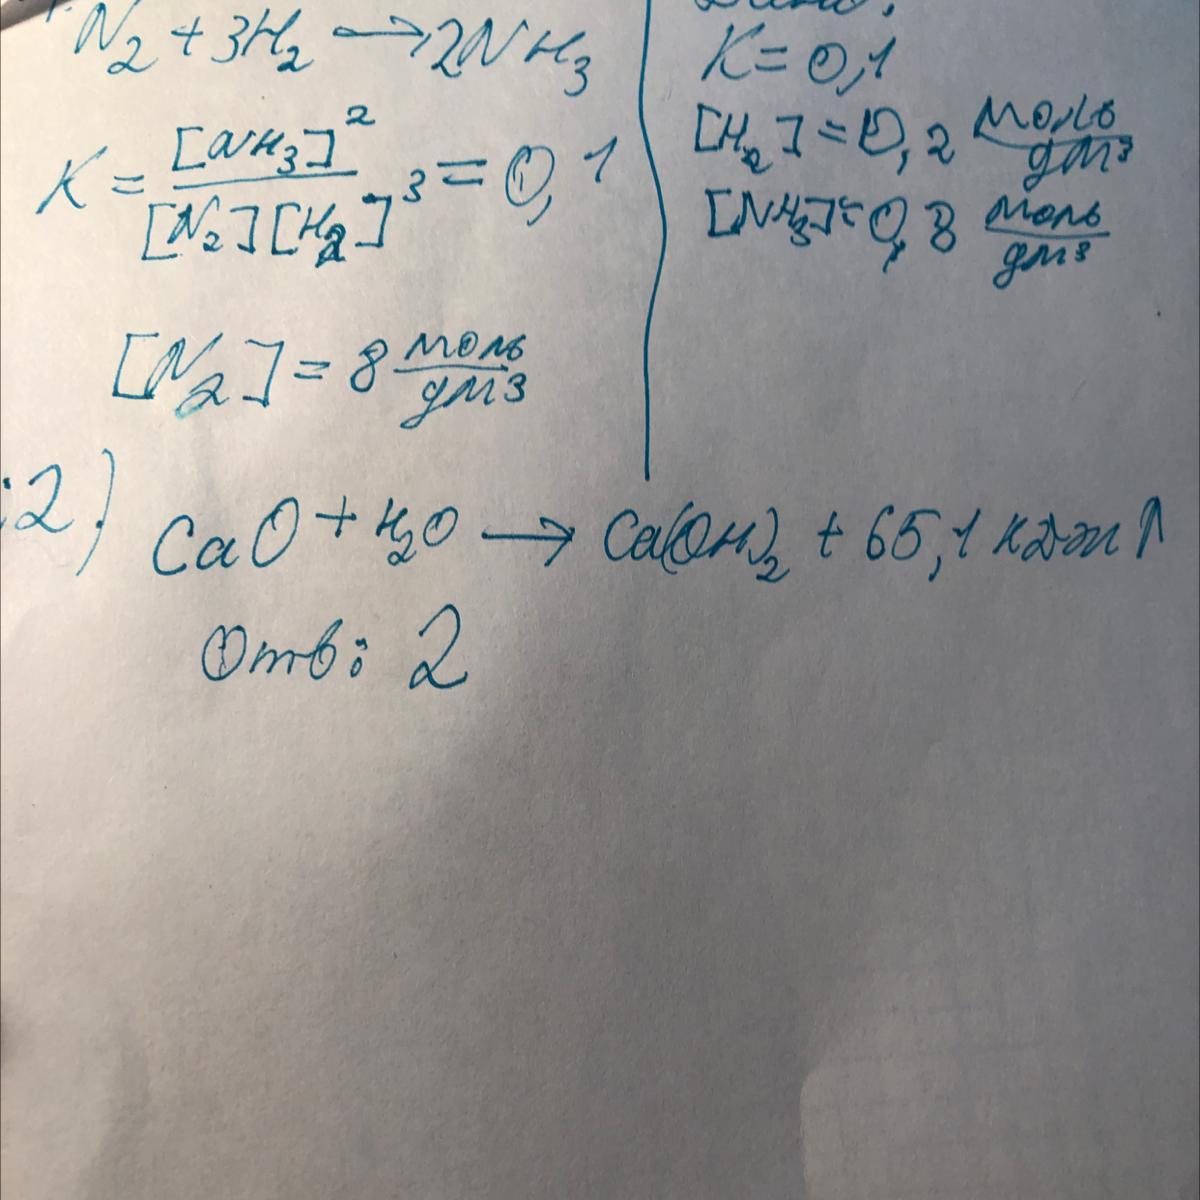 N₂ + 3H₂ → 2NH₃
K = [NH₃]² / [N₂][H₂]³ = 0,1
[N₂] = 8 моль/дм³
K = 0,1
[H₂] = 0,2 моль/дм³
[NH₃] = 0,8 моль/дм³
2) CaO + H₂O → Ca(OH)₂ + 65,1 кДж↑
Отв: 2